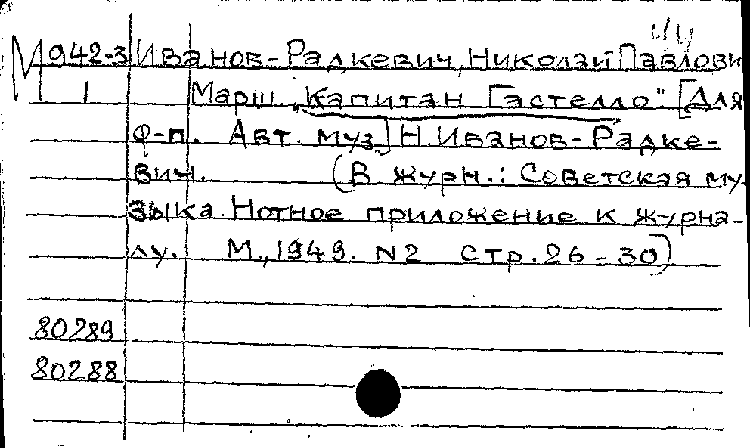 М 942-3 Иванов-Радкевич, Николай Павлови
1 Марш „Капитан Гастелло" [Для
ф-п. Авт. муз.] Н. Иванов-Радке-
вич. (В журн.: Советская му-
зыка. Нотное приложение к журна-
лу. М., 1949. N2 Стр. 26-30)
80289
80288